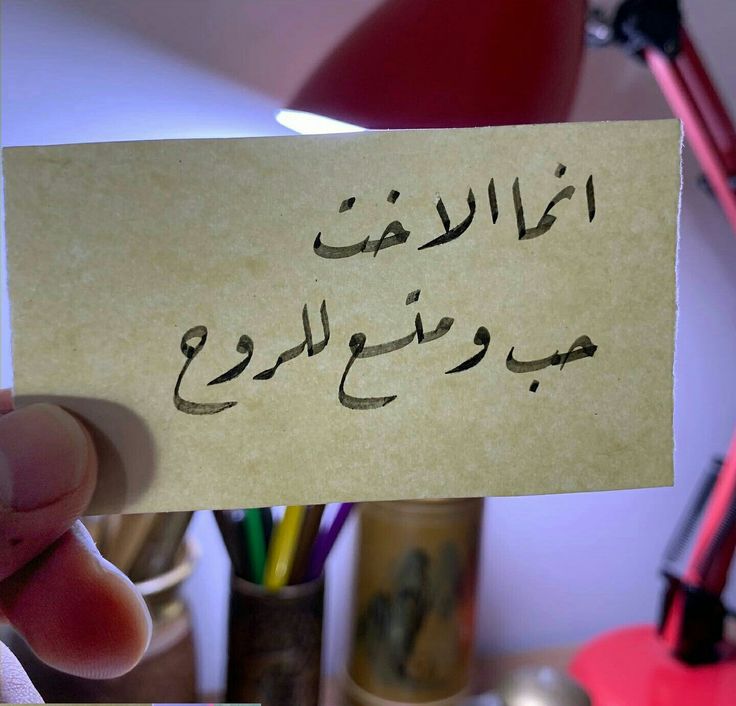 انما الاخت
حب ومتسع للروح